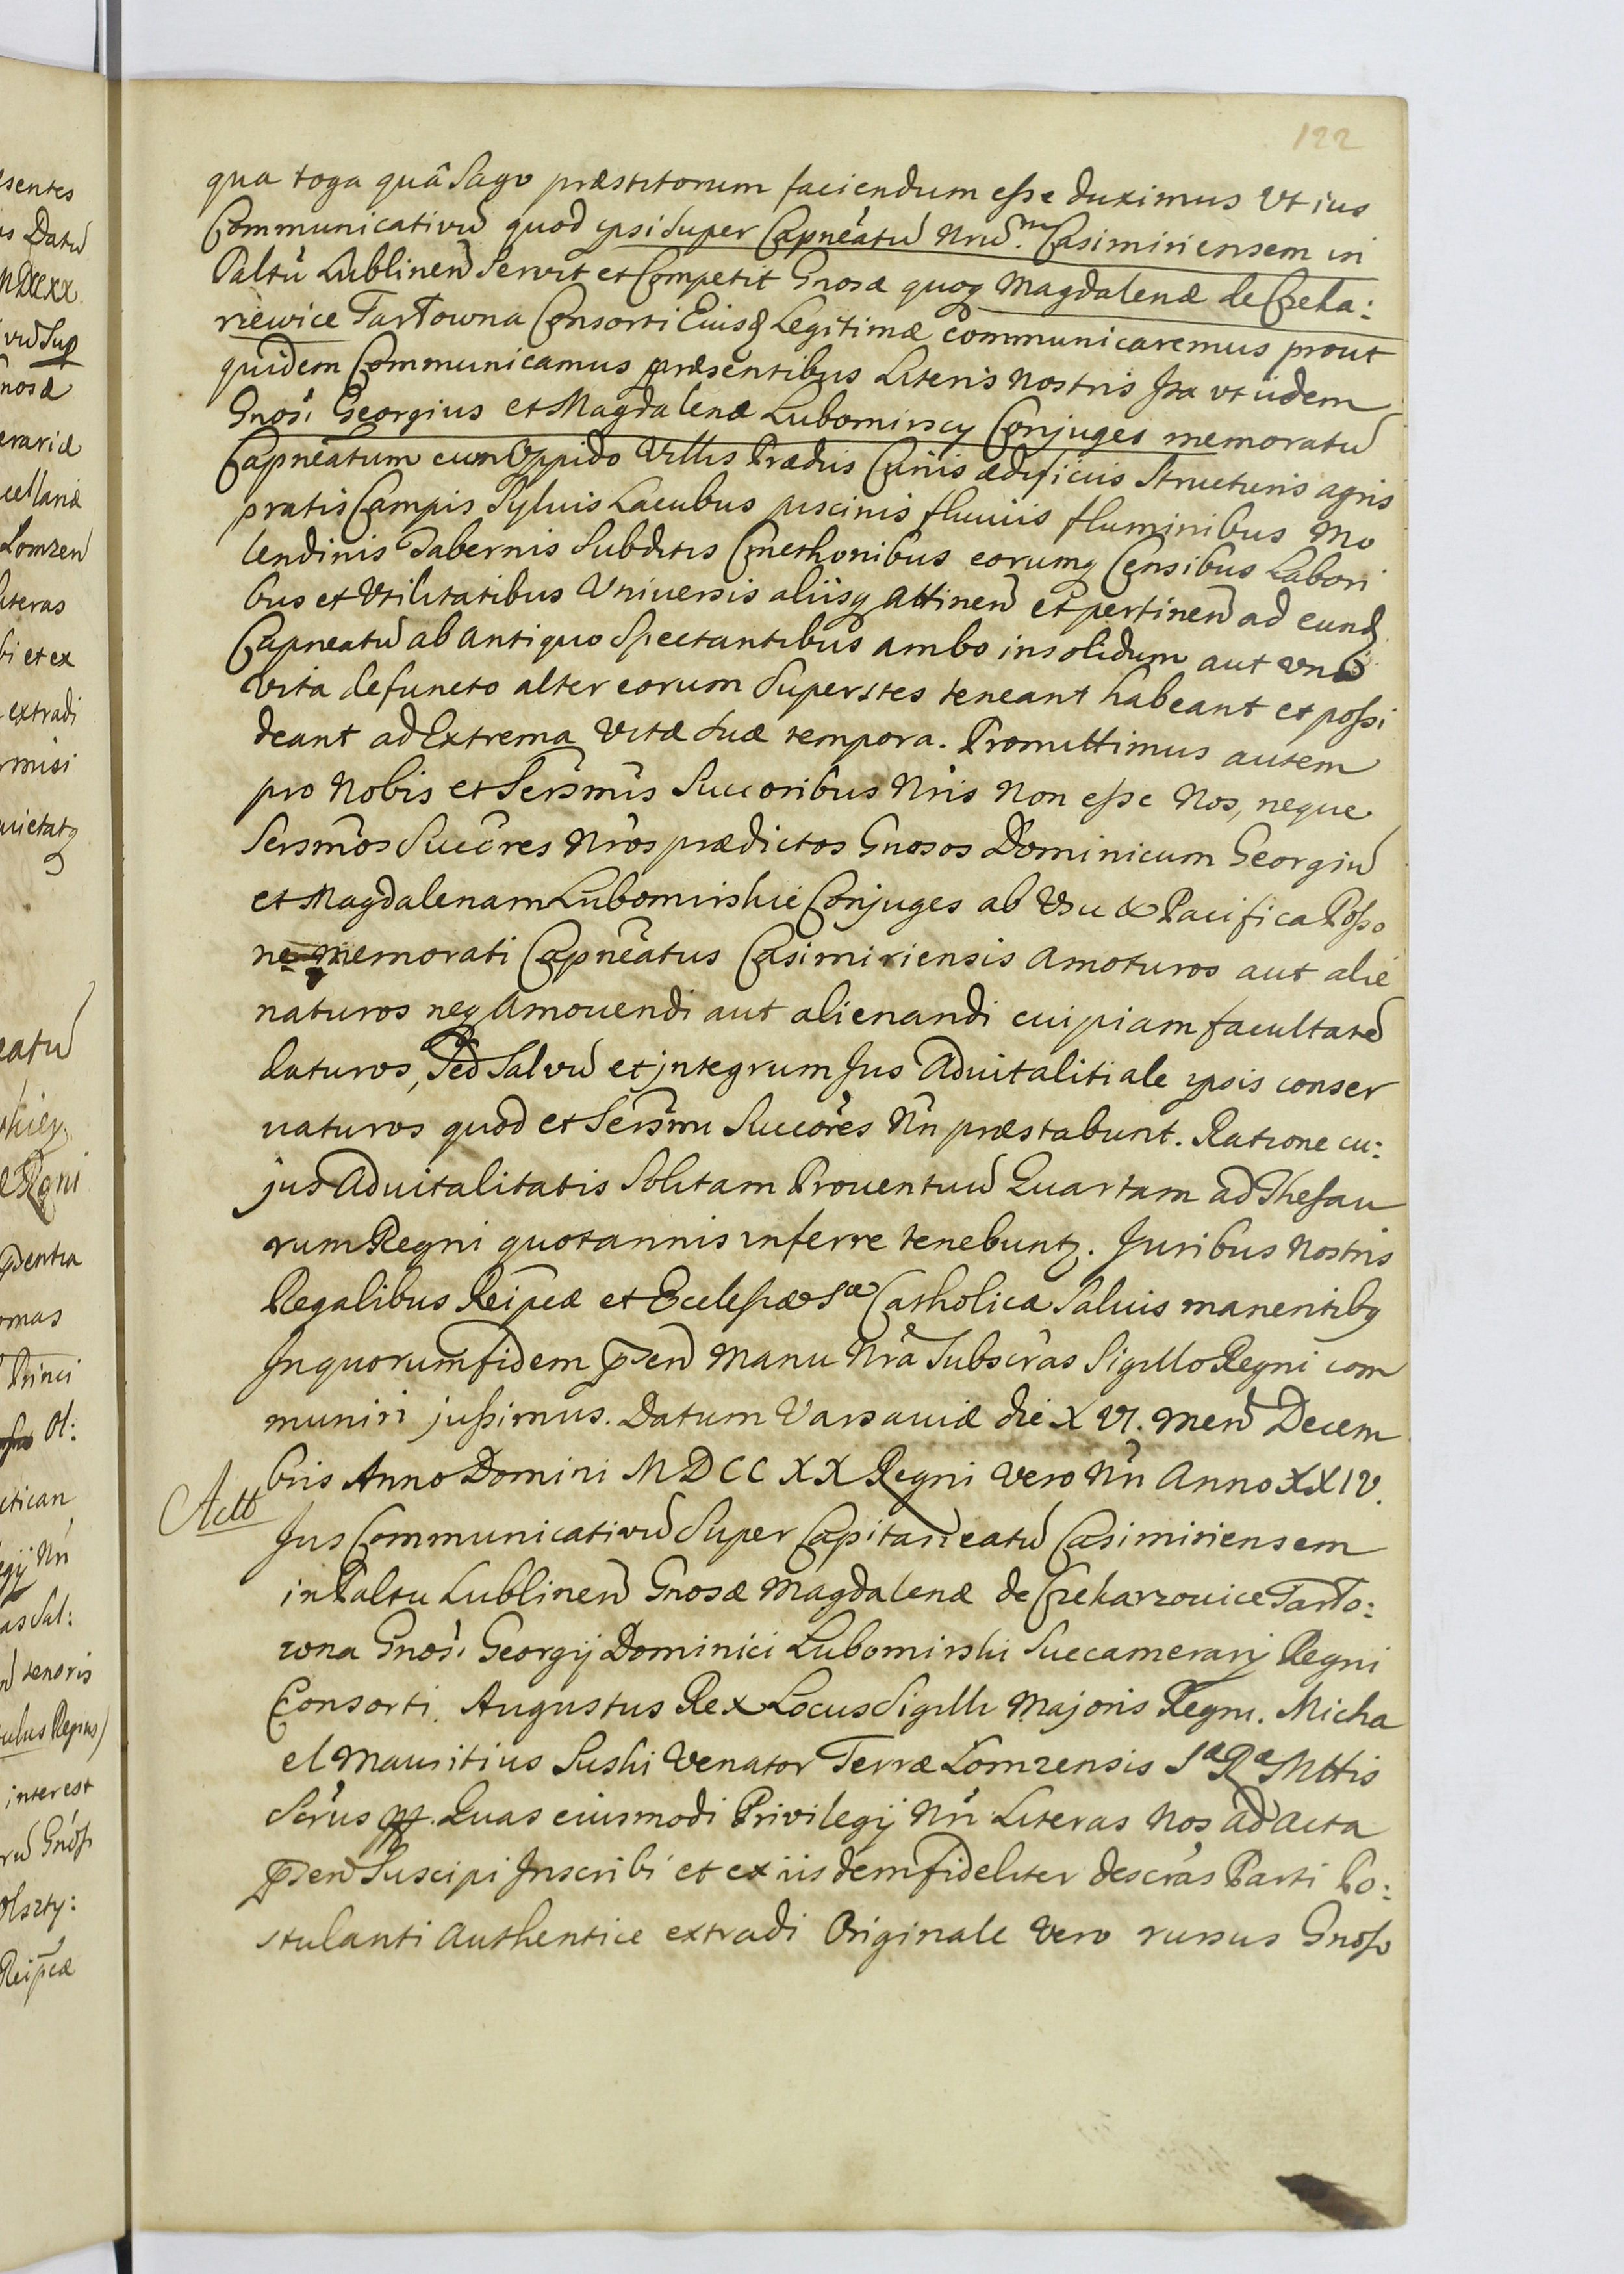 122
qua toga quâ Sago præstitorum faciendum esse duximus Vt ius
Communicativũ quod ipsi super Capneatũ Nrũm. Casimiriensem in
Paltũ Lublinen̄ Servit et Competit Gnosæ quoq Magdalenæ de Czeka:
rzewice Tarłowna Consorti Eiusd Legitimæ communicaremus prout
quidem Communicamus præsentibus Literis Nostris Ita vt iidem
Gnosi Georgius et Magdalenæ Lubomirscy Conjuges memoratũ
Capneatum cum Oppido Villis Prædiis Curiis ædificiis Structuris agris
pratis Campis Syluis Lacubus piscinis fluuiis fluminibus Mo
lendinis Tabernis Subditis Cmethonibus eorumq Censibus Labori
bus et Vtilitatibus Vniuersis aliisq Attinen̄ et pertinen̄ ad eund
Capneatũ ab antiquo Spectantibus ambo insolidum aut vno
vita defuncto alter eorum Superstes teneant habeant et possi
deant ad Extrema Vitæ suæ tempora. Promittimus autem
pro Nobis et Sersmis Succoribus Nris Non esse Nos, neque
Sersmos Succres Nros prædictos Gnosos Dominicum Georgiũ
et Magdalenam Lubomirskie Conjuges ab Vsu & Pacifica Posso
ne memorati Capneatus Casimiriensis amoturos aut alie
naturos neq Amouendi aut alienandi cuipiam facultatẽ
daturos, Sed Salvũ et jntegrum Jus Aduitalitiale ipsis conser
uaturos quod et Sersmi Succores Nri præstabunt. Ratione cu:
jus Aduitalitatis Solitam Prouentuũ Quartam ad Thesau
rum Regni quotannis inferre tenebuntz. Juribus Nostris
Regalibus Reipcæ et Eccleſiæ Sæ Catholica Saluis manentibq
In quorum fidem pꝛꝛen̄ Manu Nra Subscras Sigillo Regni com
muniri jussimus. Datum Varsauiæ die XVI. Men̄ Decem
bris Anno Domini MDCCXX Regni Vero Nri Anno XXIV.
Actt
Jus Communicativũ Super Capitaneatũ Casimiriensem
in Paltu Lublinen̄ Gnosæ Magdalenæ de Czekarzouice Tarło:
wna Gnosi Georgij Dominici Lubomirski Succamerarij Regni
Consorti. Augustus Rex Locus Sigilli Majoris Regni. Micha
el Mauritius Suski Venator Terræ Lomzensis Sæ Ræ Mttis
Scrius mp. Quas eiusmodi Privilegij Nri Literas Nos ad acta
pꝛꝛen̄ Suscipi Inscribi et ex iisdem fideliter descras Parti Po:
stulanti Authentice extradi Originale Vero rursus Gnoso